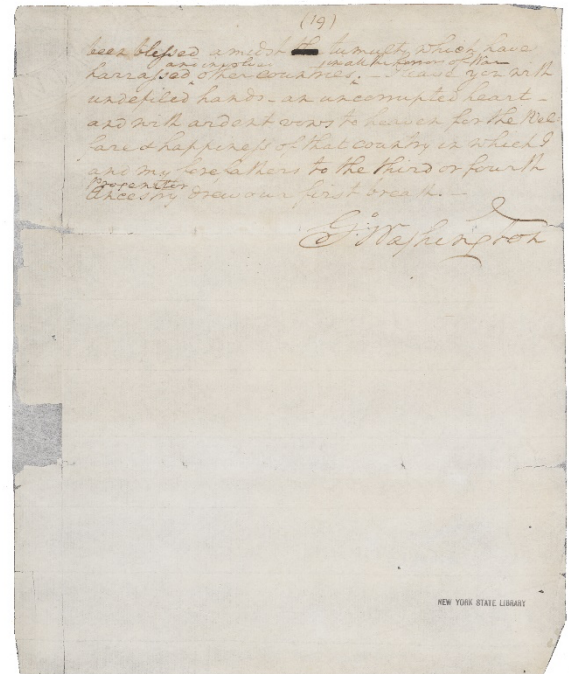 (19)
been blessed amidst the tumults which have
and involved in all the horrors of War
harrassed other countries. — I leave you with
undefiled hands – an uncorrupted heart –
and with ardent vows to heaven for the Wel-
fare & happiness of that country in which I
and my forefathers to the third or fourth
Progenitor
Ancestry drew our first breath. —
Go: Washington
NEW YORK STATE LIBRARY